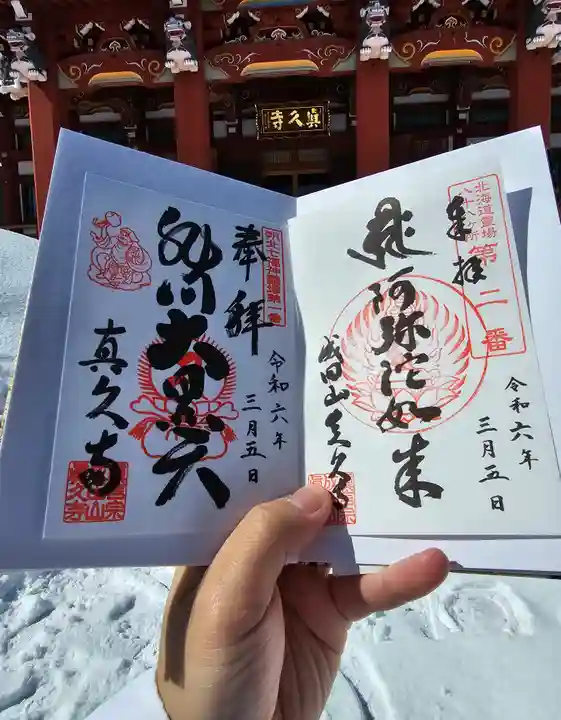 眞久寺
北海道霊場
八十八ヶ所
第二番
奉拝
阿弥陀如来
成田山真久寺
令和六年
三月五日
奉拝
大黒天
真久寺
令和六年
三月五日